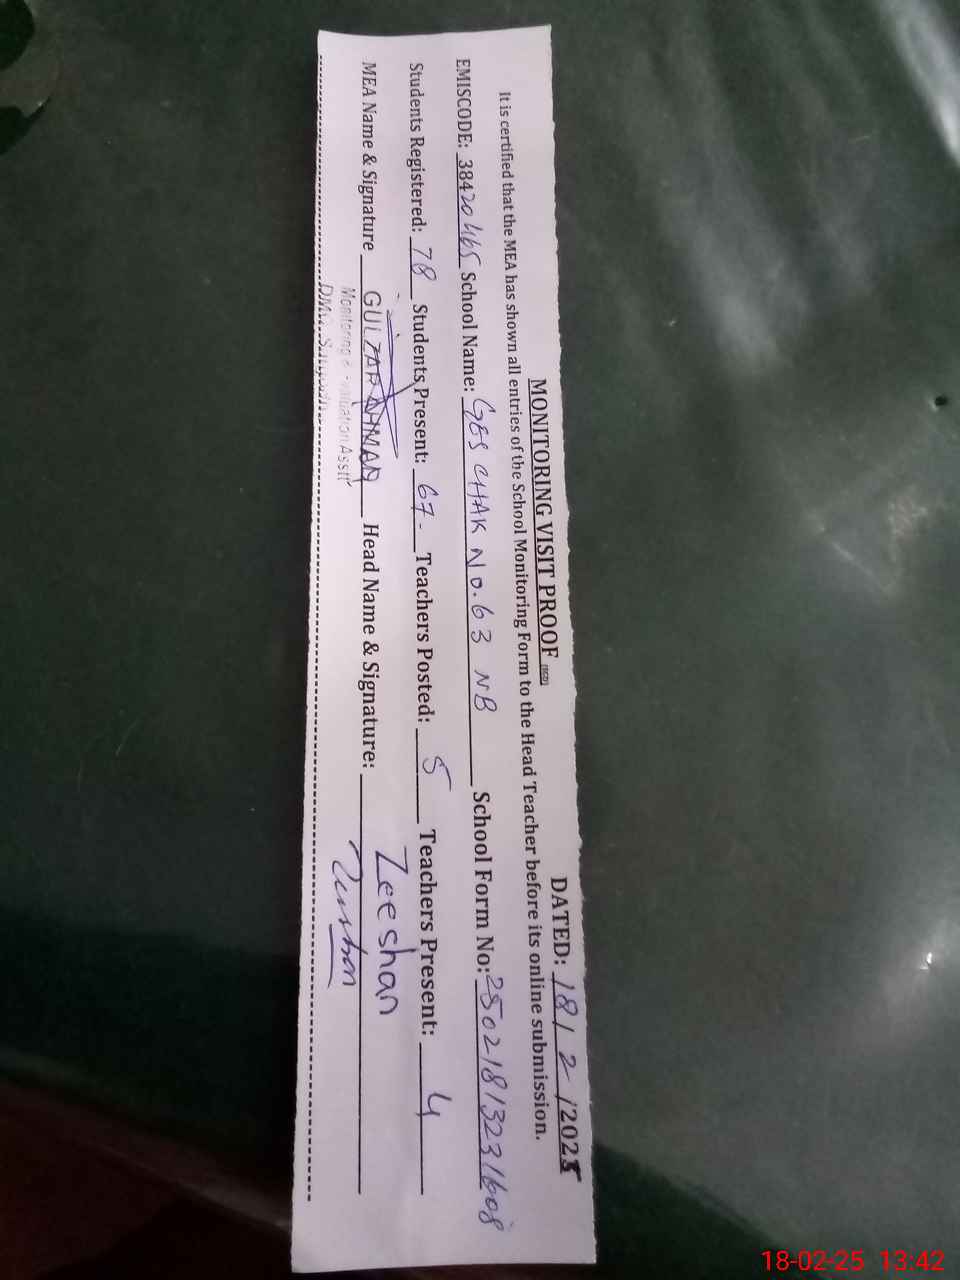 MONITORING VISIT PROOF (SED) DATED: 18/2/2025
It is certified that the MEA has shown all entries of the School Monitoring Form to the Head Teacher before its online submission.
EMISCODE: 38420465 School Name: GES CHAK NO.63 NB School Form No: 25021813231608
Students Registered: 78 Students Present: 67- Teachers Posted: 5 Teachers Present: 4
MEA Name & Signature GULZAR AHMAD Head Name & Signature: Zeeshan
Monitoring & Evaluation Asstt
18-02-25 13:42